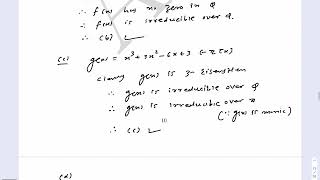 ∴ f(x) has no zero in Q
∴ f(x) is irreducible over Q.
∴ (b) ✓
(c) g(x) = x³ + 3x² - 6x + 3 ∈ Z[x]
clearly g(x) is 3- Eisenstein
∴ g(x) is irreducible over Q
∴ g(x) is irreducible over Z
(∵ g(x) is monic)
∴ (c) ✓
(d)